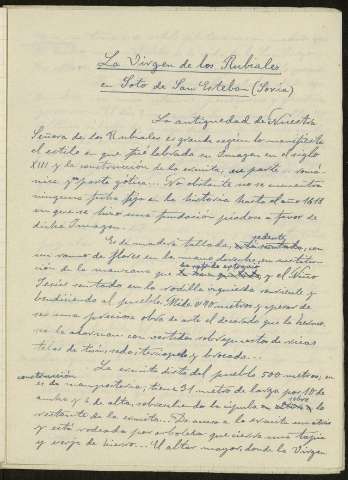 La Virgen de los Rubiales
en Soto de San Esteban (Soria)
La antigüedad de Nuestra
Señora de los Rubiales es grande según lo manifiesta
el estilo en que fué labrada su Imagen en el siglo
XIII y la construcción de la ermita, en parte romá-
nica y en parte gótica... No obstante no se encuentra
ninguna fecha fija en la historia hasta el año 1618
en que se hizo una fundación piadosa a favor de
dicha Imagen.
sedente
Es de madera tallada, con
un ramo de flores en la mano derecha, en sustitu-
ción de la manzana que y el Niño
Jesús sentado en la rodilla izquierda sonriente y
bendiciendo al pueblo. Mide 0'90 metros y a pesar de
ser una preciosa obra de arte el decorado que la hermo-
sea la adornan con vestidos sobrepuestos de ricas
telas de tisú, seda, terciopelo y brocado...
La ermita dista del pueblo 500 metros, su
construcción
es de mampostería; tiene 31 metros de larga por 10 de
ancha y 6 de alta, sobresaliendo la cúpula sobre lo
restante de la ermita... Da acceso a la ermita un atrio
y está rodeada por arboleda que cierra una tapia
y verja de hierro... El altar mayor, donde la Virgen